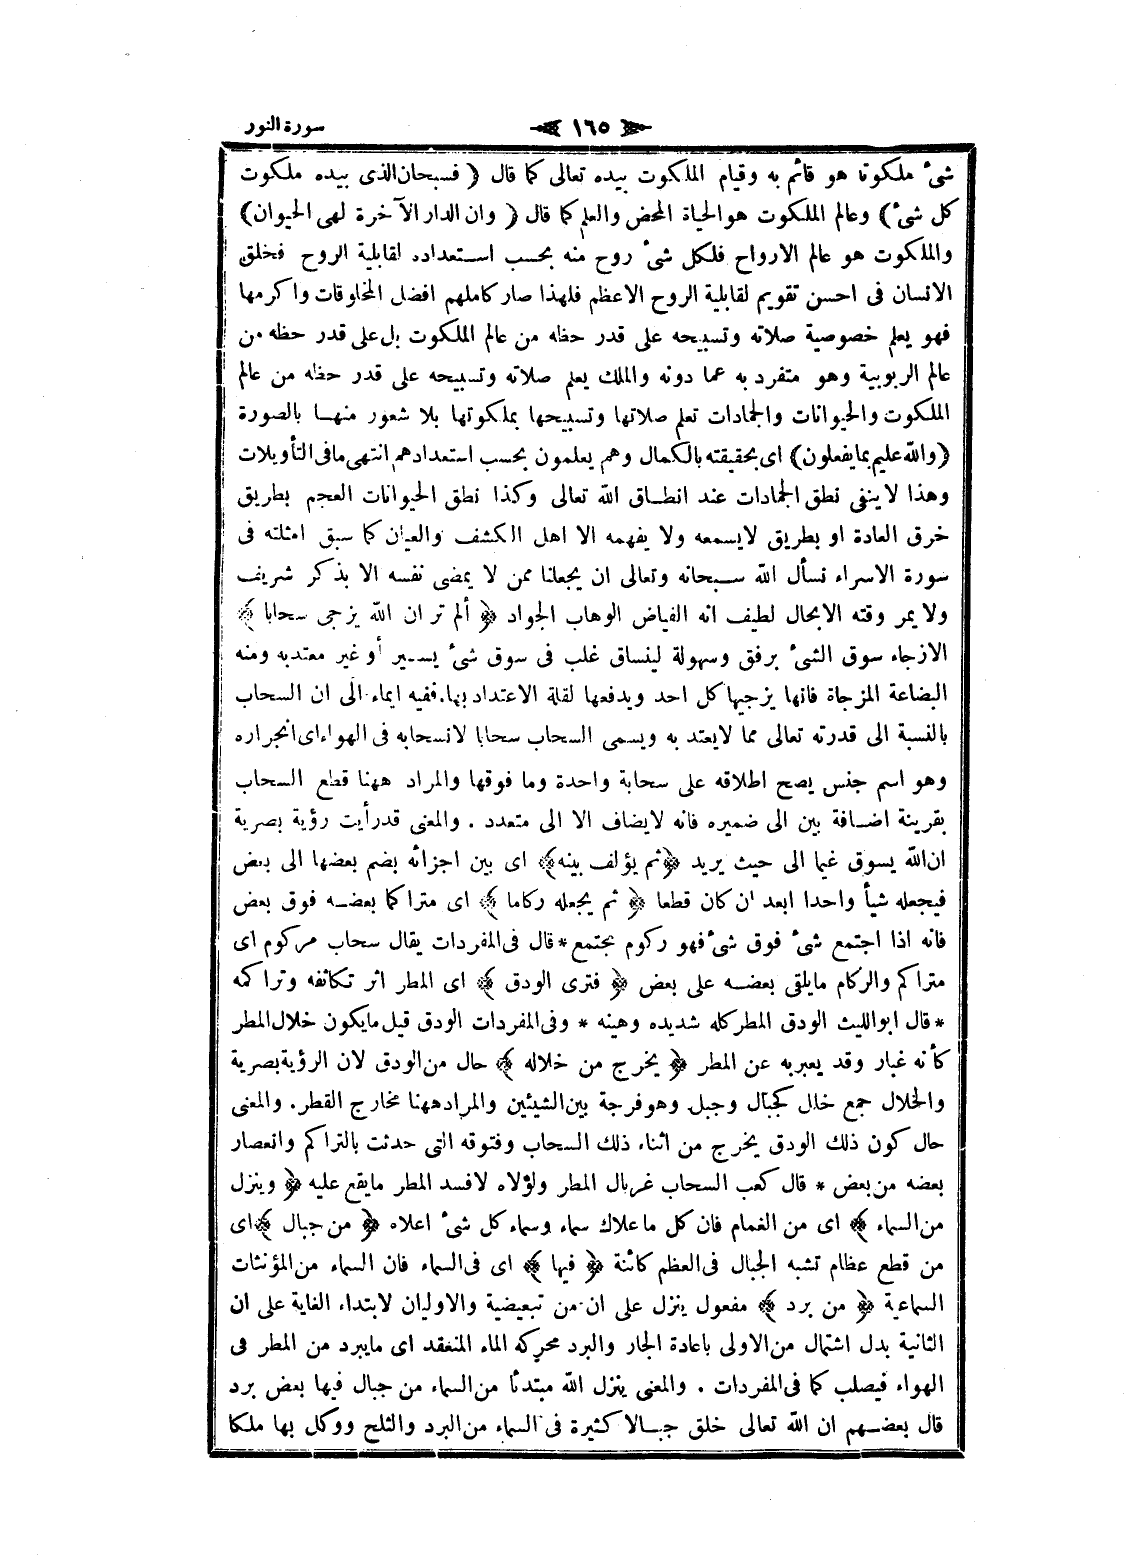 سورة النور
١٦٥
شئ ملكوتا هو قائم به وقيام الملكوت بيده تعالى كما قال ( فسبحان الذى بيده ملكوت
كل شئ ) وعالم الملكوت هو الحياة المحض والعلم كما قال ( وان الدار الآخرة لهى الحيوان )
والملكوت هو عالم الارواح فلكل شئ روح منه بحسب استعداده لقابلية الروح فخلق
الانسان فى احسن تقويم لقابلية الروح الاعظم فلهذا صار كاملهم افضل المخلوقات واكرمها
فهو يعلم خصوصية صلاته وتسبيحه على قدر حظه من عالم الملكوت بل على قدر حظه من
عالم الربوبية وهو متفرد به عما دونه والملك يعلم صلاته وتسبيحه على قدر حظه من عالم
الملكوت والحيوانات والجمادات تعلم صلاتها وتسبيحها بملكوتها بلا شعور منها بالصورة
( والله عليم بما يفعلون ) اى بحقيقته بالكمال وهم يعلمون بحسب استعدادهم انتهى ما فى التأويلات
وهذا لا ينفى نطق الجمادات عند انطاق الله تعالى وكذا نطق الحيوانات العجم بطريق
خرق العادة او بطريق لايسمعه ولا يفهمه الا اهل الكشف والعيان كما سبق امثلته فى
سورة الاسراء نسأل الله سبحانه وتعالى ان يجعلنا ممن لا يمضى نفسه الا بذكر شريف
ولا يمر وقته الابحال لطيف انه الفياض الوهاب الجواد ﴿ ألم تر ان الله يزجى سحابا ﴾
الازجاء سوق الشئ برفق وسهولة لينساق غلب فى سوق شئ يسير أو غير معتدبه ومنه
البضاعة المزجاة فانها يزجيها كل احد ويدفعها لقلة الاعتداد بها. ففيه ايماء الى ان السحاب
بالنسبة الى قدرته تعالى مما لايعتد به ويسمى السحاب سحابا لانسحابه فى الهواء اى انجراره
وهو اسم جنس يصح اطلاقه على سحابة واحدة وما فوقها والمراد ههنا قطع السحاب
بقرينة اضافة بين الى ضميره فانه لايضاف الا الى متعدد . والمعنى قدرأيت رؤية بصرية
ان الله يسوق غيما الى حيث يريد ﴿ ثم يؤلف بينه ﴾ اى بين اجزائه بضم بعضها الى بعض
فيجعله شيأ واحدا ابعد ان كان قطعا ﴿ ثم يجعله ركاما ﴾ اى متراكما بعضه فوق بعض
فانه اذا اجتمع شئ فوق شئ فهو ركوم مجتمع * قال فى المفردات يقال سحاب مركوم اى
متراكم والركام مايلقى بعضه على بعض ﴿ فترى الودق ﴾ اى المطر اثر تكاثفه وتراكمه
* قال ابوالليث الودق المطر كله شديده وهينه * وفى المفردات الودق قيل مايكون خلال المطر
كأنه غبار وقد يعبربه عن المطر ﴿ يخرج من خلاله ﴾ حال من الودق لان الرؤية بصرية
والخلال جمع خلل كجبال وجبل وهو فرجة بين الشيئين والمراد ههنا مخارج القطر. والمعنى
حال كون ذلك الودق يخرج من اثناء ذلك السحاب وفتوقه التى حدثت بالتراكم وانعصار
بعضه من بعض * قال كعب السحاب غربال المطر ولولاه لافسد المطر مايقع عليه ﴿ وينزل
من السماء ﴾ اى من الغمام فان كل ماعلاك سماء وسماء كل شئ اعلاه ﴿ من جبال ﴾ اى
من قطع عظام تشبه الجبال فى العظم كائنة ﴿ فيها ﴾ اى فى السماء فان السماء من المؤنثات
السماعية ﴿ من برد ﴾ مفعول ينزل على ان من تبعيضية والاوليان لابتداء الغاية على ان
الثانية بدل اشتمال من الاولى باعادة الجار والبرد محركه الماء المنعقد اى مايبرد من المطر فى
الهواء فيصلب كما فى المفردات . والمعنى ينزل الله مبتدئا من السماء من جبال فيها بعض برد
قال بعضهم ان الله تعالى خلق جبالا كثيرة فى السماء من البرد والثلج ووكل بها ملكا